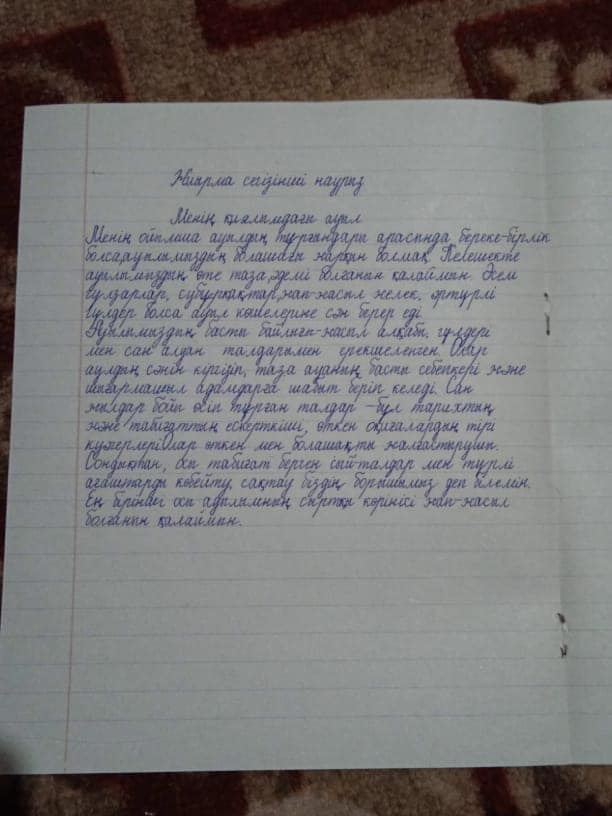 Жиырма сегізінші наурыз
Менің қиялымдағы ауыл
Менің ойымша ауылдың тұрғындары арасында береке-бірлік
болса, ауылымыздың болашағы жарқын болмақ. Келешекте
ауылымыздың өте таза, әдемі болғанын қалаймын. Әсем
гүлзарлар, субұрқақтар, жап-жасыл желек, әртүрлі
гүлдер болса ауыл көшелеріне сән берер еді.
Ауылымыздың басты байлығы-жасыл алқабы, гүлдері
мен сан алуан талдарымен ерекшеленген. Олар
аулдың сәнін кіргізіп, таза ауаның басты себепкері және
шығармашыл адамдарға шабыт беріп келеді. Сан
жылдар бойы өсіп тұрған талдар - бұл тарихтың
және табиғаттың ескерткіші, өткен оқиғалардың тірі
куәгерлері олар өткен мен болашақты жалғастырушы.
Сондықтан, осы табиғат берген сый-талдар мен түрлі
ағаштарды көбейту, сақтау біздің борышымыз деп білемін.
Ең бірінші осы ауылымның сыртқы көрінісі жап-жасыл
болғанын қалаймын.